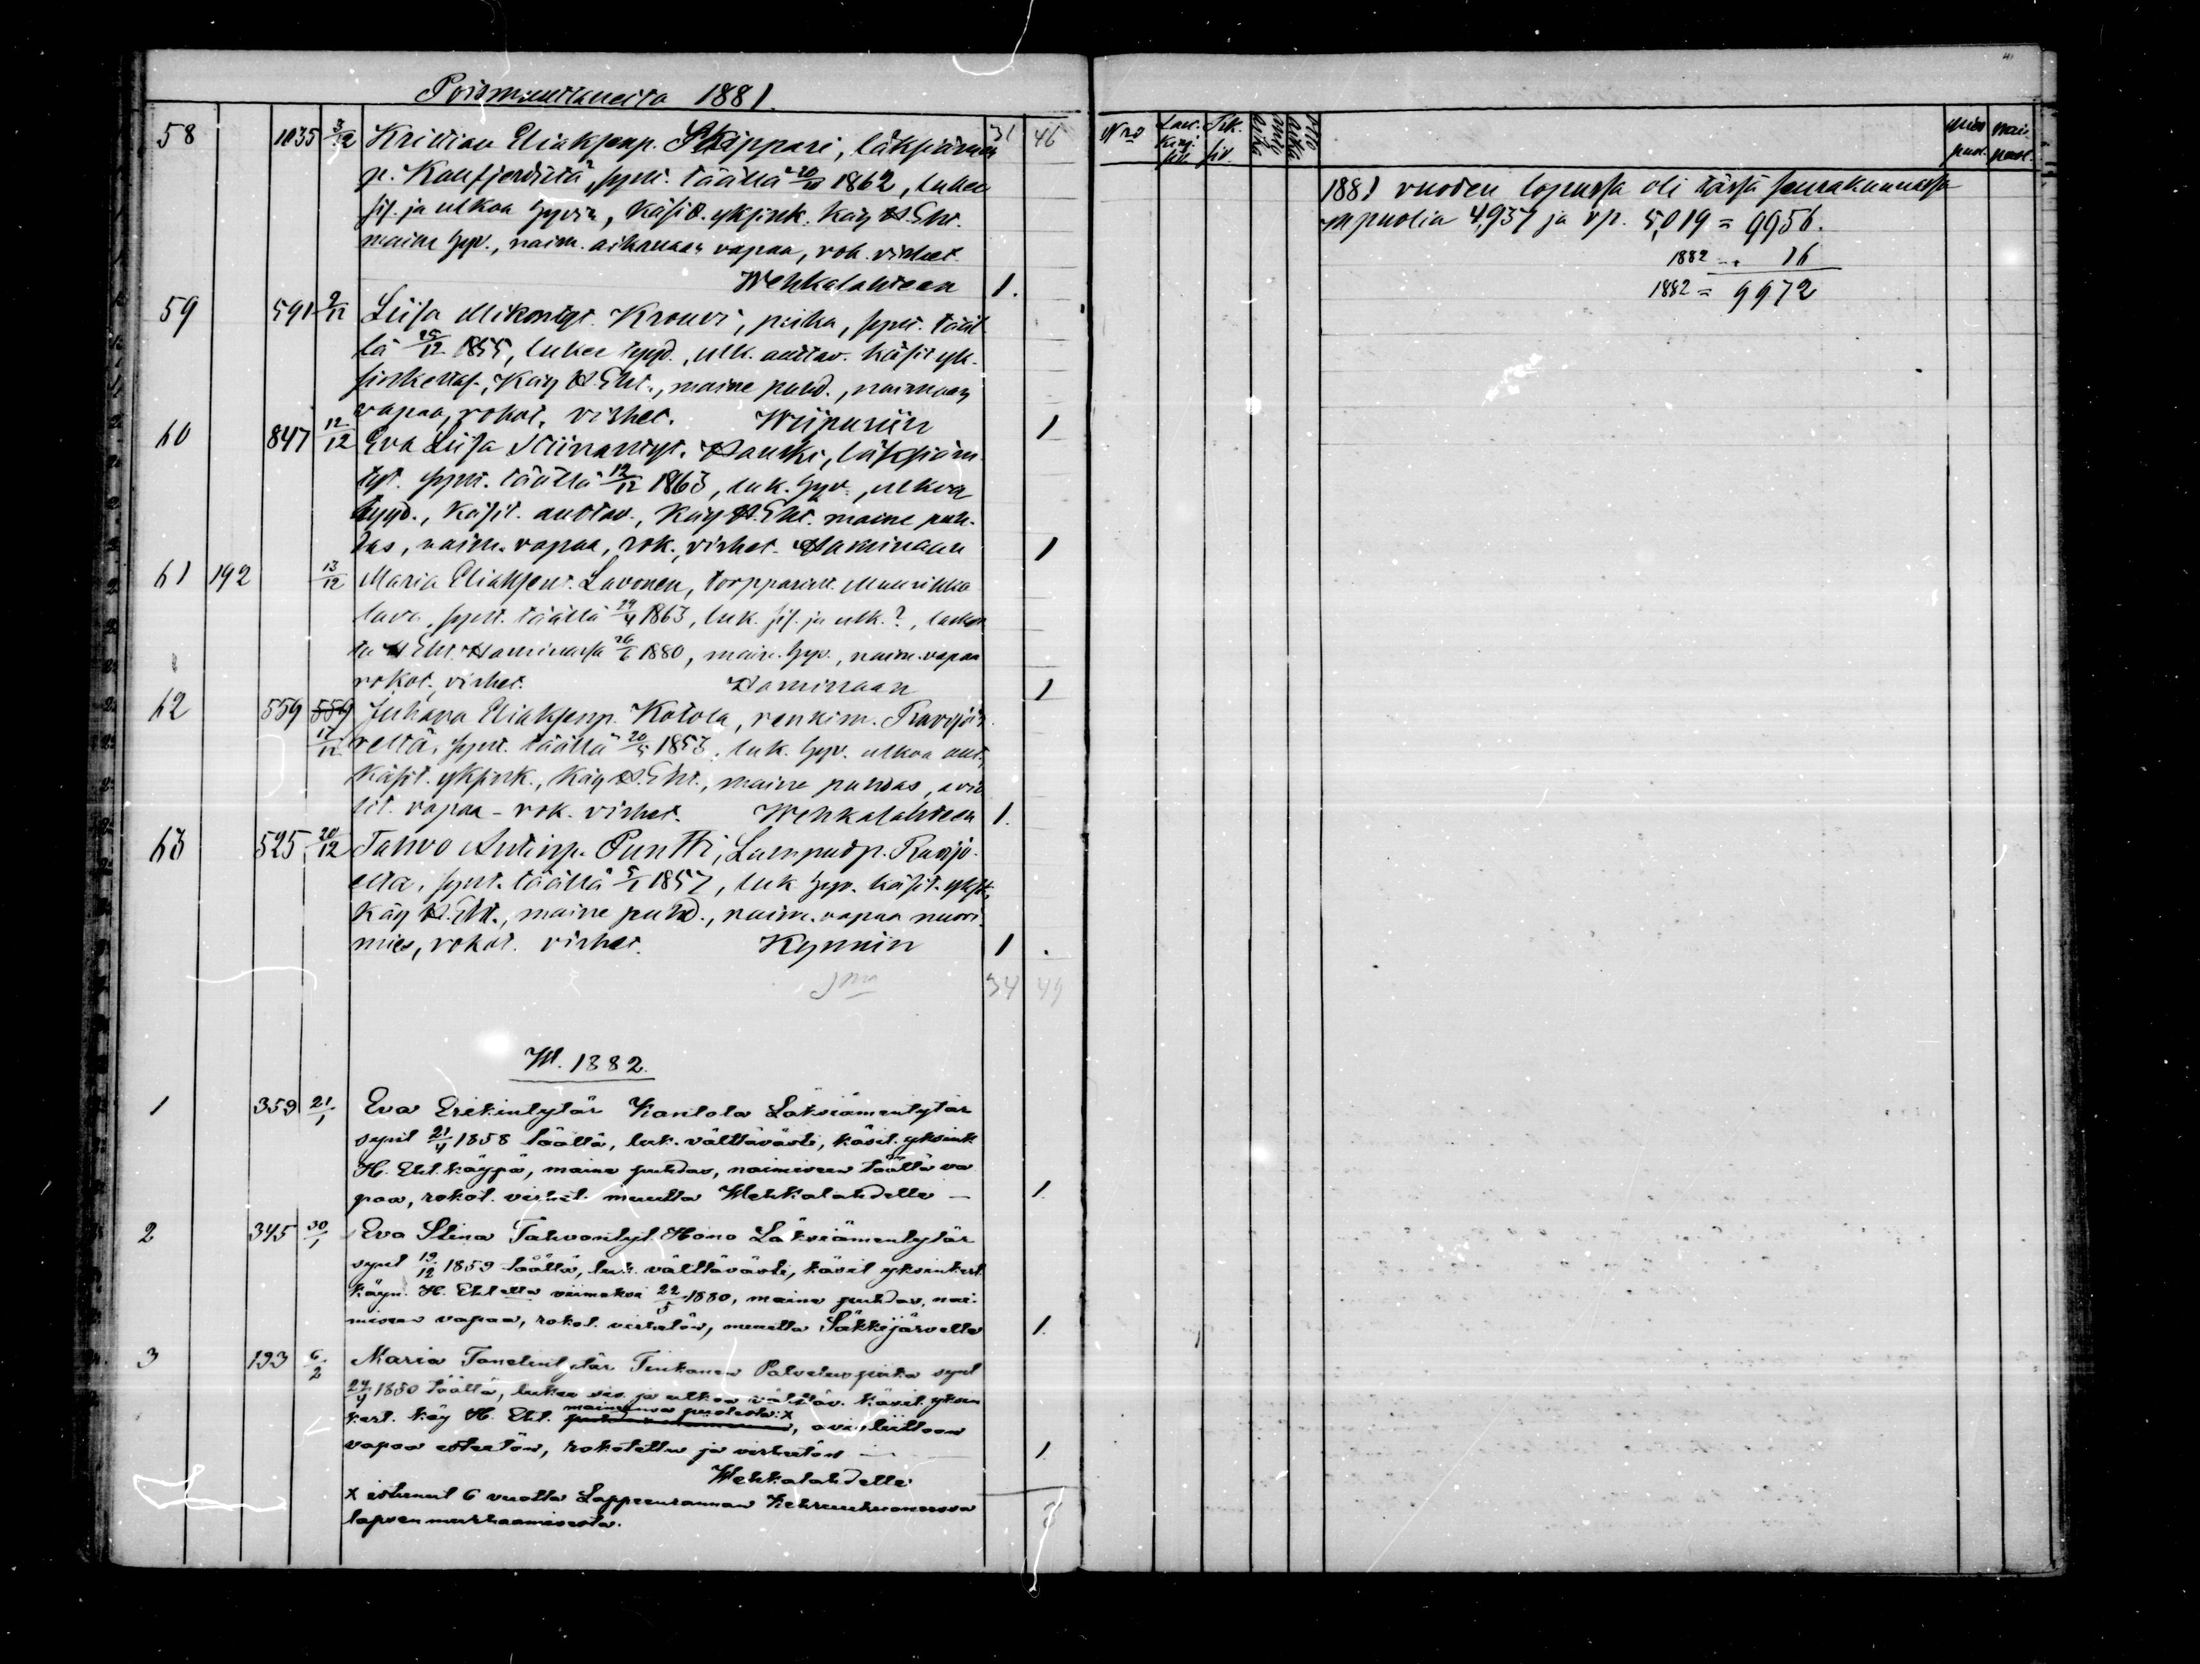 Poismuuttaneita 1881.
31 46
58 1035 3/12 Kristian Eliaksenp. Skippari, läksiämen
p. täältä 20/10 1862, lukee
sis. ja ulkoa hyvin, käsit. yksink. käy H. Eht.
maine hyv., naim. aikanaan vapaa, rok. virhet.
Wehkalahteen 1.
59 591 9/12 Liisa Mikontyt. Krouvi, piika, synt. tääl-
lä 25/12 1855, lukee tyyd., ulk. auttav. käsit yk-
sinkertas., käy H. Eht., maine puhd., naimaan
vapaa, rokot. virhet. Wiipuriin 1
60 847 12/12 Eva Liisa Hauski, läksiäm.
tyt. synt. täällä 12/12 1863, luk. hyv., ulkoa
tyyd., käsit. auttav., käy H. Eht. maine puh-
das, naim. vapaa, rok., virhet. Haminaan 1
61 192 13/12 Maria Eliaksent. Lavonen, torpparint. Muurikka
lava, synt. täällä 24/4 1863, luk. sis. ja ulk.?, laskett
tu H Eht. Haminassa 26/6 1880, main. hyv., naim. vapaa
rokot., virhet. Haminaan 1
62 559 559 Juhana Eliaksenp. Kotola, renkim. Ravijär
17/12 veltä, synt. täällä 20/5 1853, luk. hyv. ulkoa aut.,
käsit. yksink., käy H. Eht., maine puhdas, avio
lit. vapaa - rok. virhet. Wehkalahteen 1.
63 525 20/12 Tahvo Antinp. Puntti, Lampuodp. Ravijo-
elta, synt. täällä 5/1 1857, luk hyv. käsit. yksk.,
käy H. Eht., maine puhd., naim. vapaa nuori
mies, rokot. virhet. Kymiin 1
Sma 34 49
W. 1882.
1 359 21/1 Eva Erikintytär Kantola Läksiämentytär
synt 21/4 1858 täällä, luk. välttävästi, käsit. yksink
H. Eht. käypä, maine puhdas, naimiseen täältä va
paa, rokot. virhet. muutta Wehkalahdelle — 1.
2 345 30/1 Eva Stina Tahvontyt. Hono Läksiämentytär
synt 19/12 1859 täällä, luk. välttävästi, käsit yksinkert.
käyn. H. Ehtella viimeksi 22/5 1880, maine puhdas, nai-
miseen vapaa, rokot. virhetön, muutta Säkkijärvelle 1.
3 193 6/2 Maria Tanelintytär Tiukanen Palveluspiika synt
24/4 1850 täällä, lukee sis. ja ulkoa välttäv. käsit. yksin
kert. käy H. Eht. maineensa puolesta: x, avioliittoon
vapaa esteetön, rokotettu ja virheetön — 1.
Wehkalahdelle
x istunut 6 vuotta Lappeenrannan Kehruuhuoneessa
lapsen murhaamisesta.
3
Nro Las. Kirj. siv. Rk. siv. Otto aika Muutto aika Mies puol. Nai. puol.
1881 vuoden lopussa oli tässä seurakunnassa
mpuolia 4,937 ja vp. 5,019 = 9956.
1882 + 16
1882 = 9972